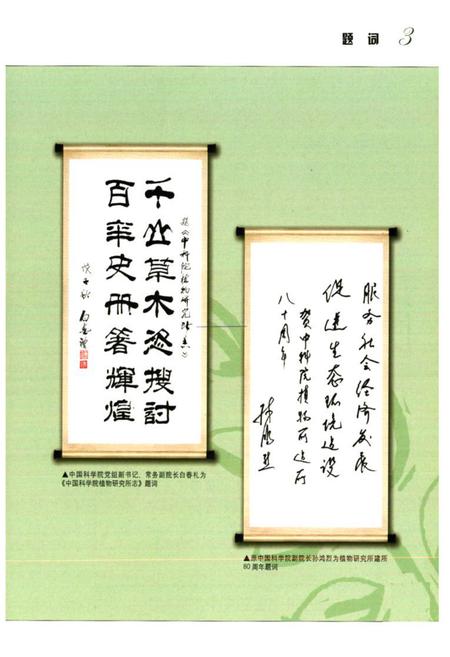 题词 3
题《中科院植物研究所志》
千山草木恣搜討
百年史册箸輝煌
白春礼
▲中国科学院党组副书记、常务副院长白春礼为
《中国科学院植物研究所志》题词
服务社会经济发展
促进生态环境建设
贺中科院植物所建所
八十周年
孙鸿烈
▲原中国科学院副院长孙鸿烈为植物研究所建所
80周年题词